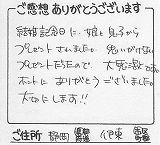 ご感想 ありがとうございます
結婚記念日に、娘と息子から
プレゼントされました。思いがけない
プレゼントだったので、大感激です。
ホントに ありがとうございます
大切にします!!
ご住所 静岡 都道府県 伊東 市区町村